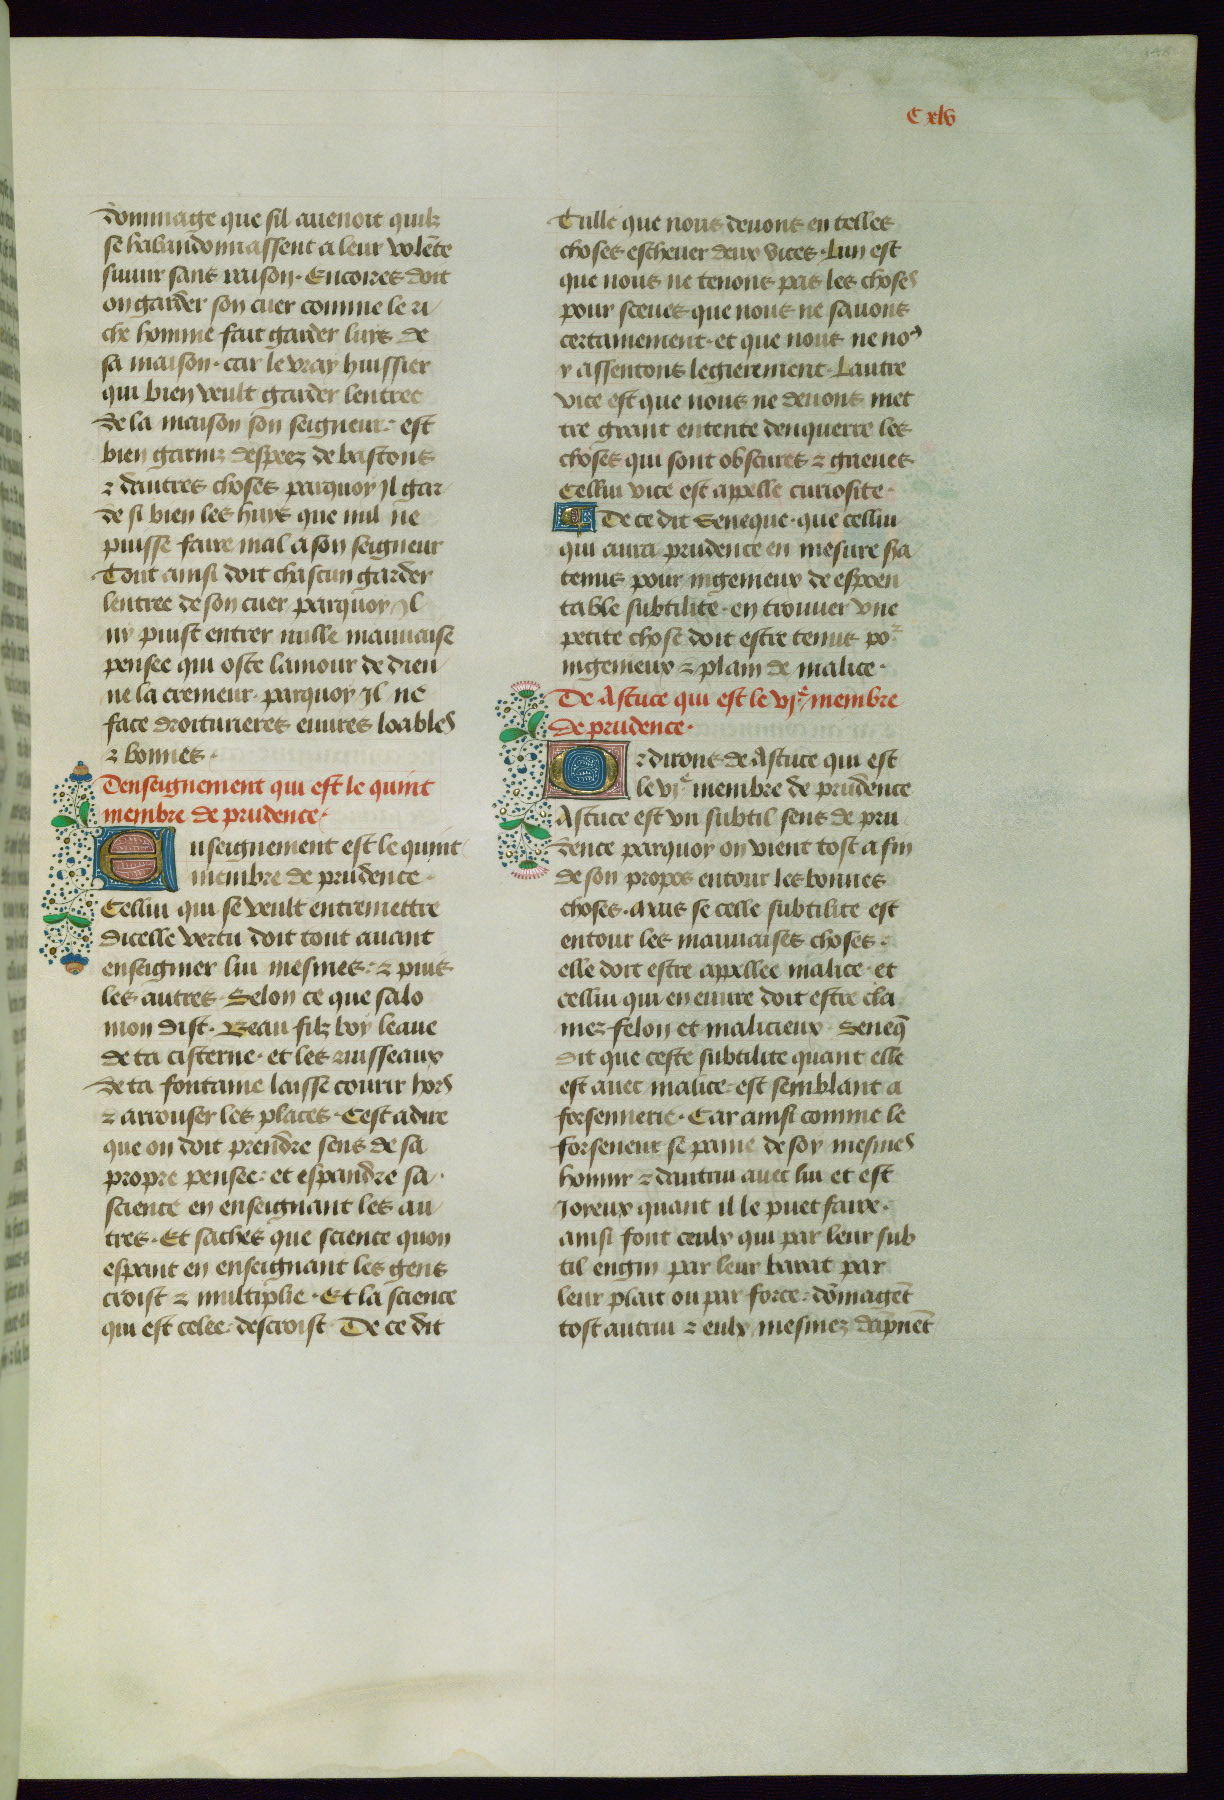 C xlv
dommage que sil auenoit quilz
se habandonnassent a leur volẽte
suiuir sans raison. Encores doit
on garder son cuer comme le ri
che homme fait garder luis de
sa maison. car le vray huissier
qui bien veult garder lentree
de la maison son seigneur. est
bien garniz despeez de bastons
⁊ dautres choses parquoy Jl gar
de si bien les huys que nul ne
puisse faire mal a son seigneur
Tout ainsi doit chascun garder
lentree de son cuer parquoy Jl
ny puist entrer nulle mauuaise
pensee qui oste lamour de dieu
ne la cremeur. parquoy Jl ne
face droiturieres euures loables
⁊ bonnes.
Denseignement qui est le quint
membre de prudence.
Enseignement est le quint
membre de prudence.
Cellui qui se veult entremettre
dicelle vertu doit tout auant
enseigner lui mesmes. ⁊ puis
les autres. Selon ce que salo
mon dist. Beau filz boy leaue
de ta cisterne. et les ruisseaux
de ta fontaine laisse courir hors
⁊ arrouser les places. Cest a dire
que on doit prendre sens de sa
propre pensee. et espandre sa
science en enseignant les au
tres. Et saches que science quon
espant en enseignant les gens
croist ⁊ multiplie. Et la science
qui est celee. descroist. De ce dit
Tulle que nous deuons en telles
choses escheuer deux vices. Lun est
que nous ne tenons pas les choses
pour sceues que nous ne sauons
certainement. et que nous ne noꝰ
y assentons legierement. Lautre
vice est que nous ne deuons met
tre grant entente denquerre les
choses qui sont obscures ⁊ grieues
Cellui vice est appelle curiosite.
¶ De ce dit Seneque. que cellui
qui aura prudence en mesure sera
tenus pour ingenieux de espoen
table subtilite. en trouuer vne
petite chose doit estre tenus poᷣ
ingenieux ⁊ plain de malice.
De Astuce qui est le vjᵉ membre
de prudence.
Or dirons de Astuce qui est
le vjᵉ membre de prudence
Astuce est vn subtil sens de pru
dence parquoy on vient tost a fin
de son propos entour les bonnes
choses. Mais se celle subtilite est
entour les mauuaises choses.
elle doit estre appellee malice. et
cellui qui en euure doit estre cla
mez felon et malicieux. Seneq̃
dit que ceste subtilite quant elle
est auec malice. est semblant a
forsennerie. Car ainsi comme le
forsenent se paine de soy mesmes
honnir ⁊ dautrui auec lui et est
Joyeux quant il le puet faire.
ainsi font ceulx qui par leur sub
til engin par leur barat par
leur plait ou par force. dõmagẽt
tost autrui ⁊ eulx mesmez dãpnẽt